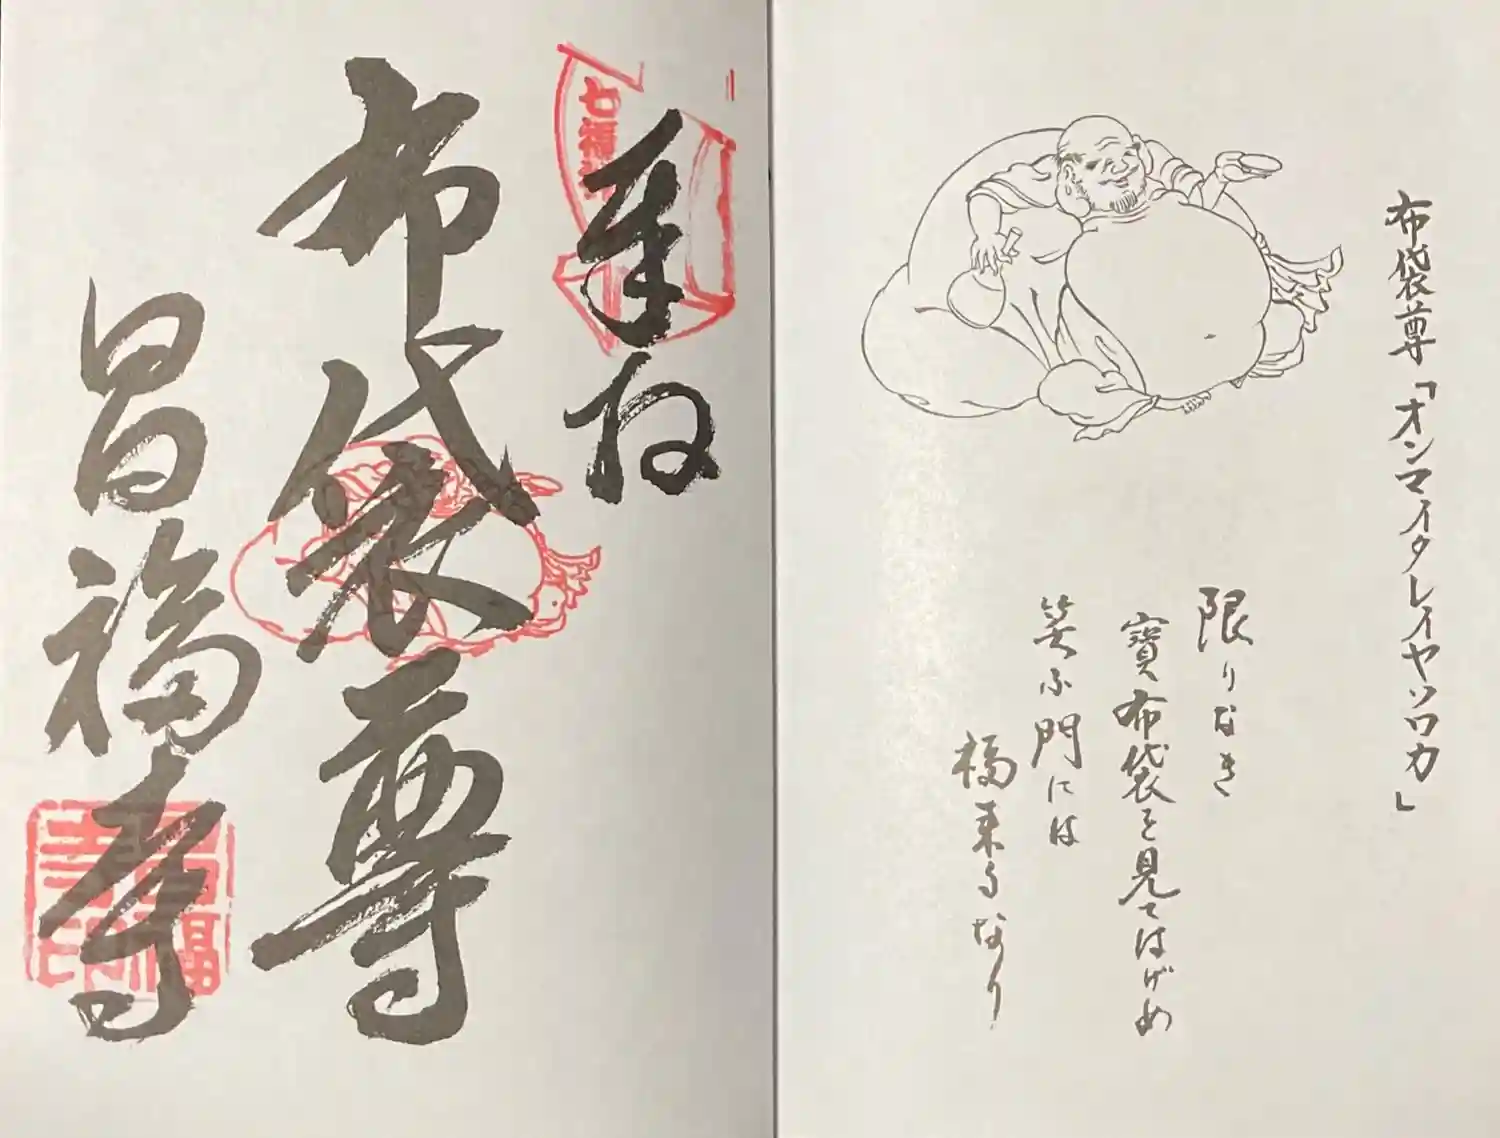 布袋尊「オンマイタレイヤソワカ」
限りなき
寶布袋を見てはげめ
笑ふ門には
福来るなり
奉拝
七福
布袋尊
昌福寺